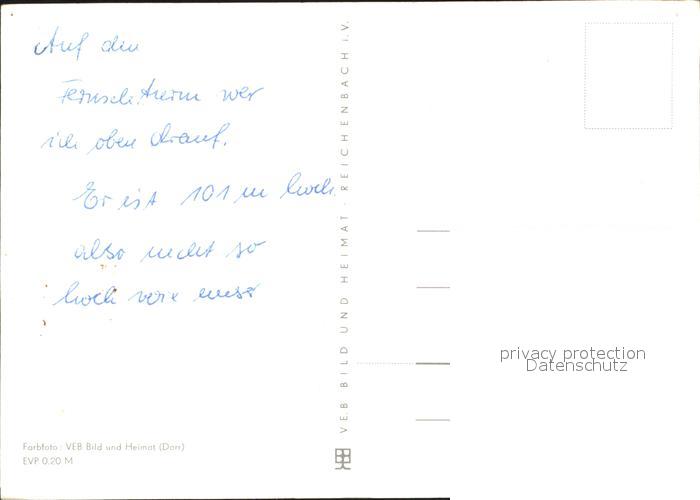 Auf den
Fernseh.turm war
ich oben drauf.
Er ist 101 m hoch
also nicht so
hoch wie unser
VEB BILD UND HEIMAT · REICHENBACH I.V.
privacy protection
Datenschutz
Farbfoto: VEB Bild und Heimat (Dorr)
EVP 0.20 M